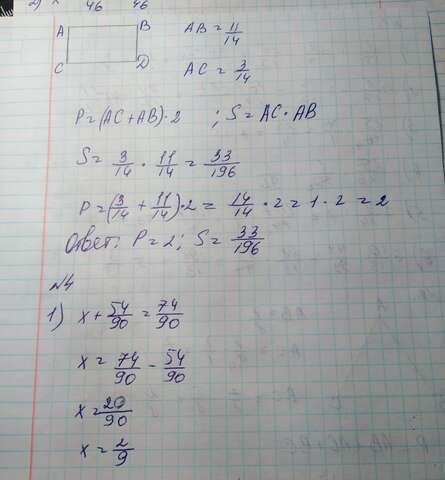 2) x 46 46
A B AB = 11/14
C D AC = 3/14
P = (AC + AB) · 2 ; S = AC · AB
S = 3/14 · 11/14 = 33/196
P = (3/14 + 11/14) · 2 = 14/14 · 2 = 1 · 2 = 2
Ответ: P = 2; S = 33/196
№4
1) x + 54/90 = 74/90
x = 74/90 - 54/90
x = 20/90
x = 2/9